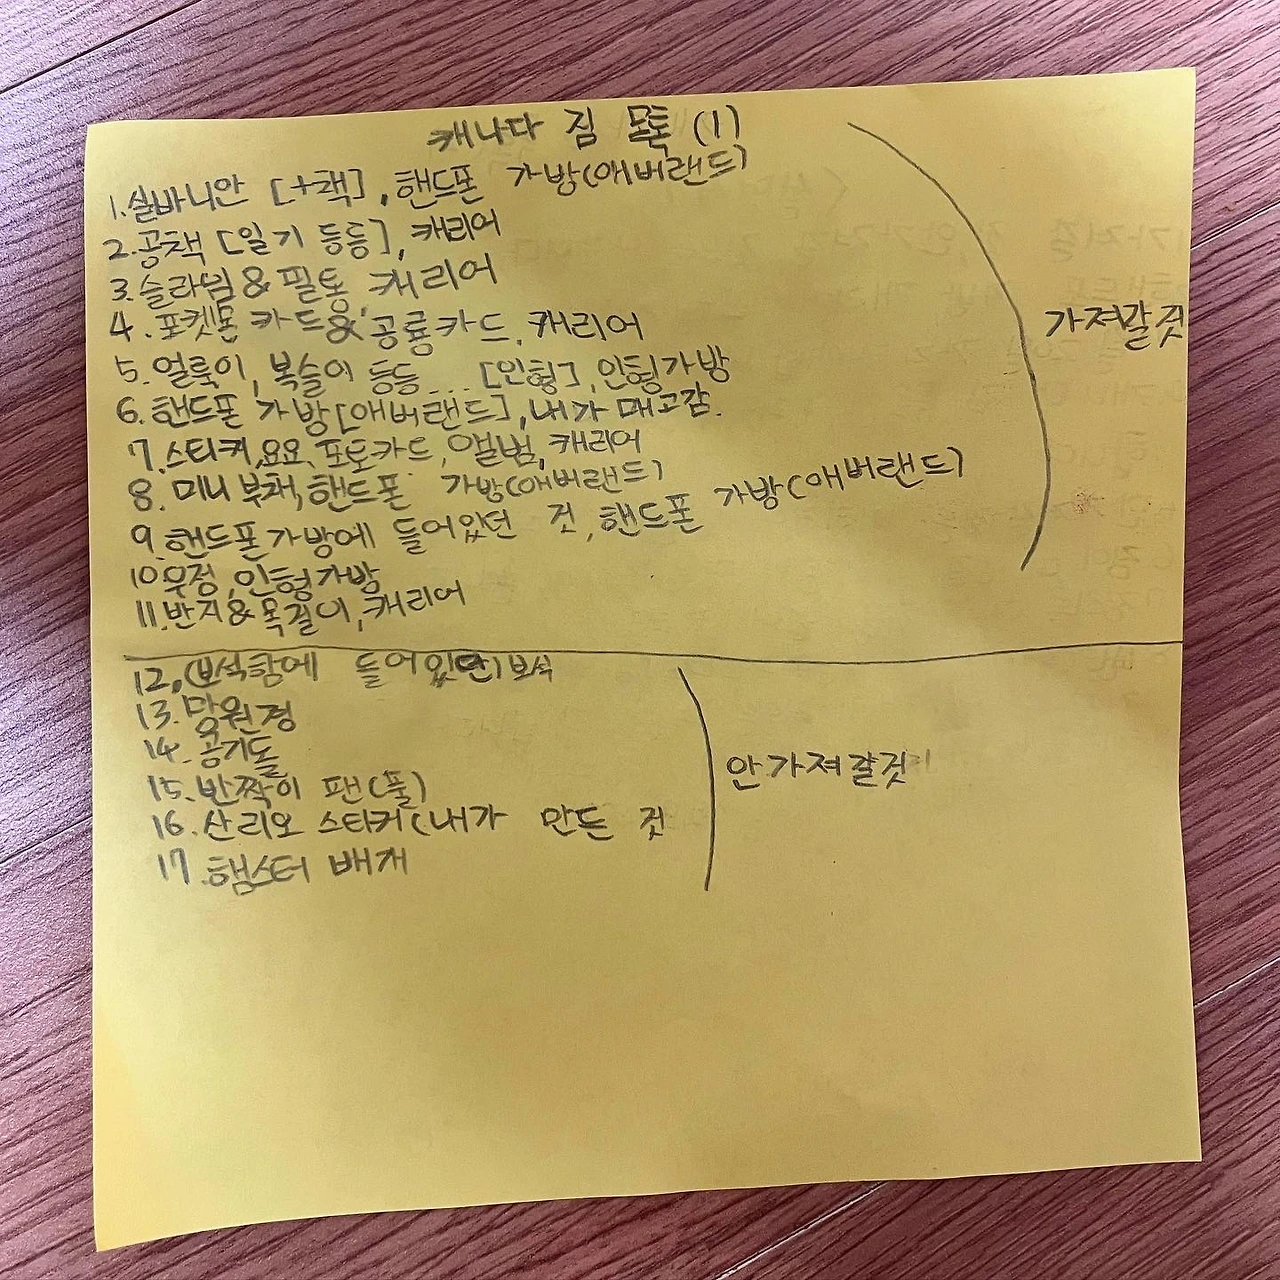 캐나다 짐 목록 (1)
1.실바니안 [+책], 핸드폰 가방(애버랜드)
2.공책 [일기 등등], 캐리어
3.슬라임 & 필통, 캐리어
4.포켓몬 카드 & 공룡카드, 캐리어
5.얼룩이, 복슬이 등등... [인형], 인형가방
6.핸드폰 가방[애버랜드], 내가 매고감.
7.스티커, 요요, 포토카드, 앨범, 캐리어
8.미니 부채, 핸드폰 가방(애버랜드)
9.핸드폰가방에 들어있던 것, 핸드폰 가방(애버랜드)
10 우정, 인형가방
11.반지&목걸이, 캐리어
가져갈것
12.(보석함에 들어있던)보석
13.망원경
14.공기돌
15.반짝이 팬(풀)
16.산리오 스티커(내가 만든 것
17.햄스터 배개
안가져갈것